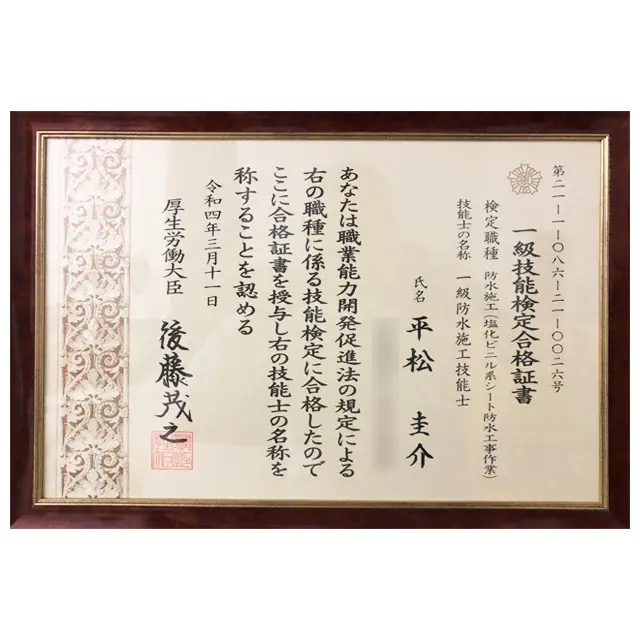 第二一-一-〇八六-二一-〇〇二六号
一級技能検定合格証書
検定職種 防水施工(塩化ビニル系シート防水工事作業)
技能士の名称 一級防水施工技能士
氏名 平松 圭介
あなたは職業能力開発促進法の規定による
右の職種に係る技能検定に合格したので
ここに合格証書を授与し右の技能士の名称を
称することを認める
令和四年三月十一日
厚生労働大臣 後藤茂之